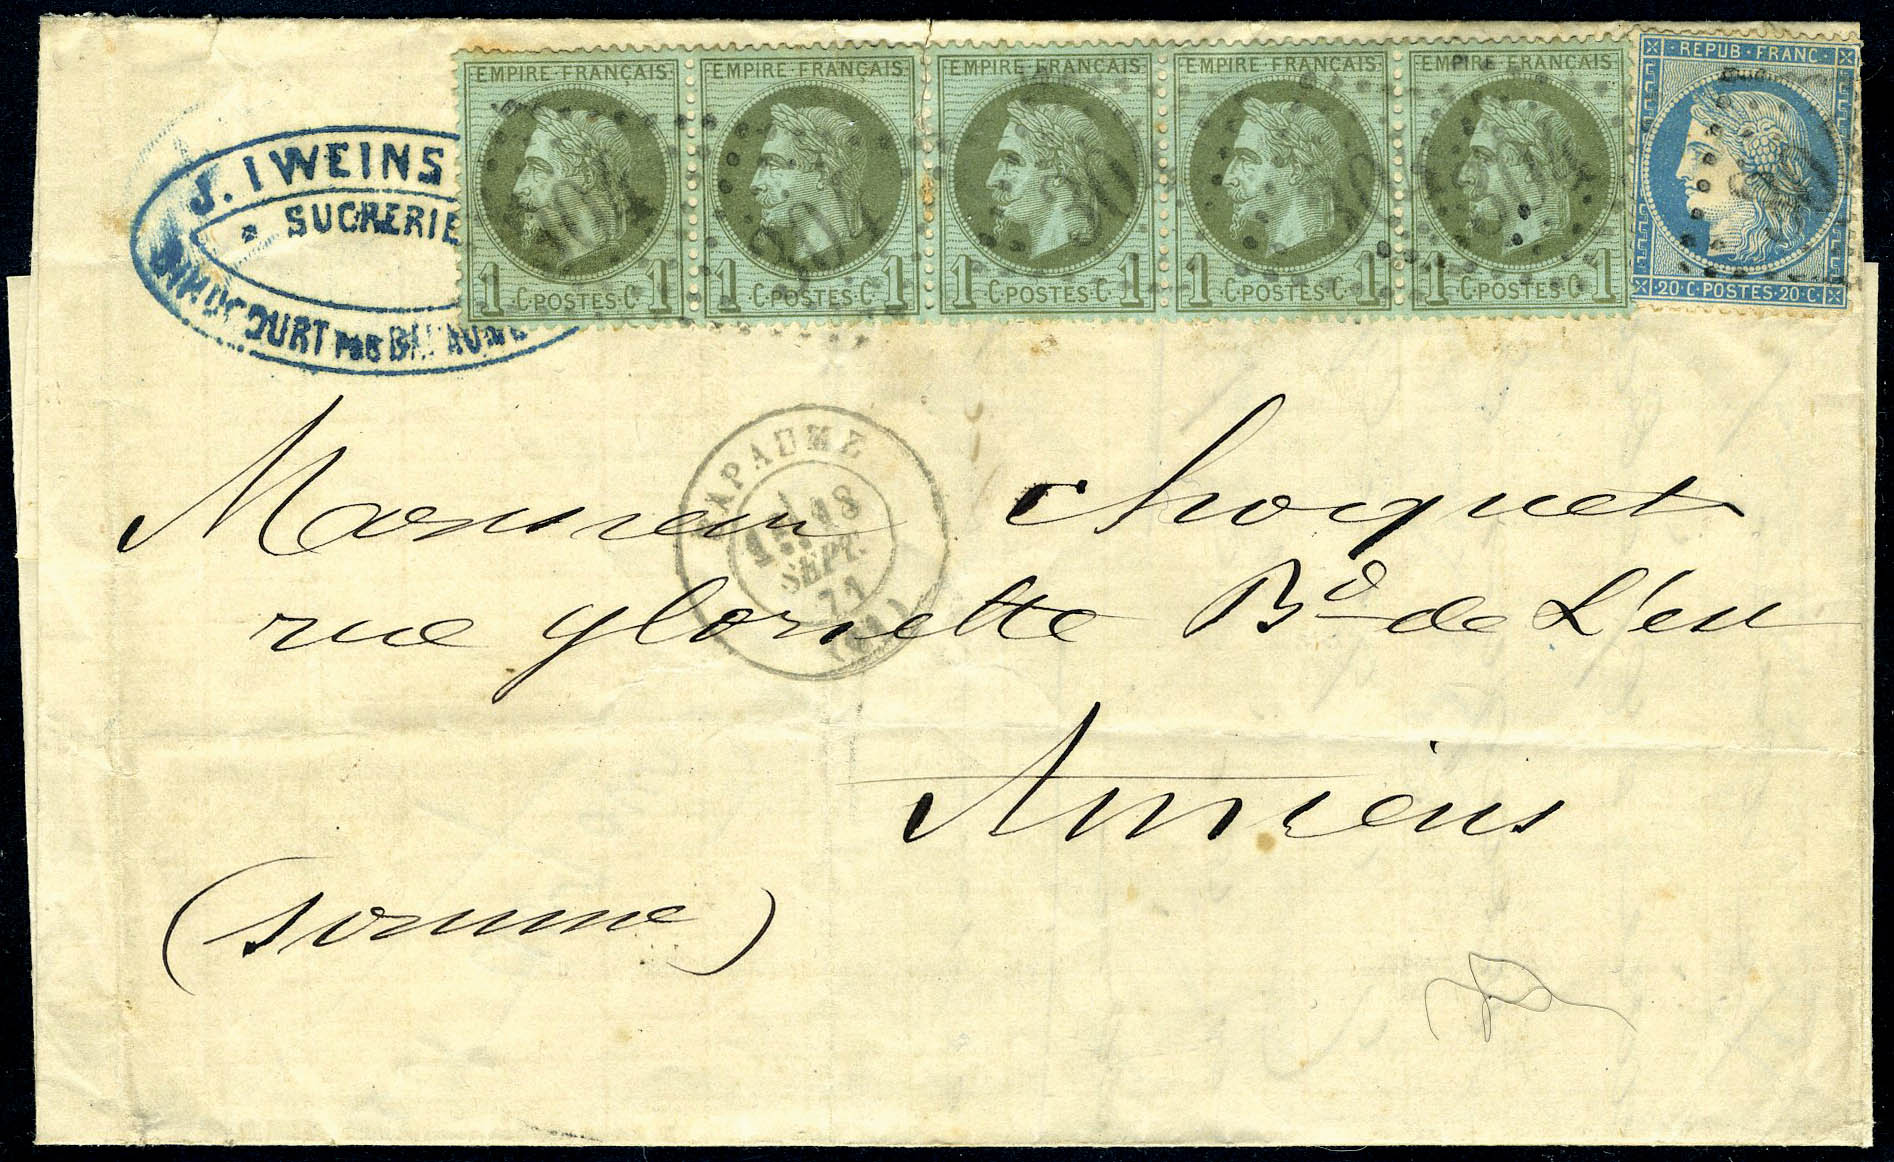 J. IWEINS
SUCRERIE
PAR BAPAUME
EMPIRE FRANÇAIS EMPIRE FRANÇAIS EMPIRE FRANÇAIS EMPIRE FRANÇAIS EMPIRE FRANÇAIS
1 C·POSTES·C 1 1 C·POSTES·C 1 1 C·POSTES·C 1 1 C·POSTES·C 1 1 C·POSTES·C 1
REPUB·FRANC·
20·C·POSTES·20·C·
BAPAUME
18
SEPT.
71
(61)
Monsieur Choquet
rue gloriette Bd de L'eu
Amiens
(somme)